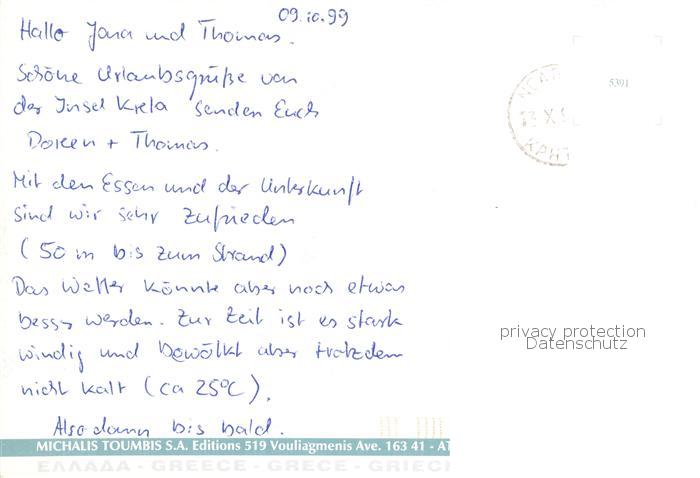 09.10.99
Hallo Jana und Thomas.
Schöne Urlaubsgrüße von
der Insel Kreta senden Euch
Doreen + Thomas.
Mit den Essen und der Unterkunft
sind wir sehr zufrieden
(50 m bis zum Strand)
Das Wetter könnte aber noch etwas
besser werden. Zur Zeit ist es stark
windig und bewölkt aber trotzdem
nicht kalt (ca 25°C).
Also dann bis bald.
5391
privacy protection
Datenschutz
MICHALIS TOUMBIS S.A. Editions 519 Vouliagmenis Ave. 163 41 - AT
ΕΛΛΑΔΑ - GREECE - GRECE - GRIEC